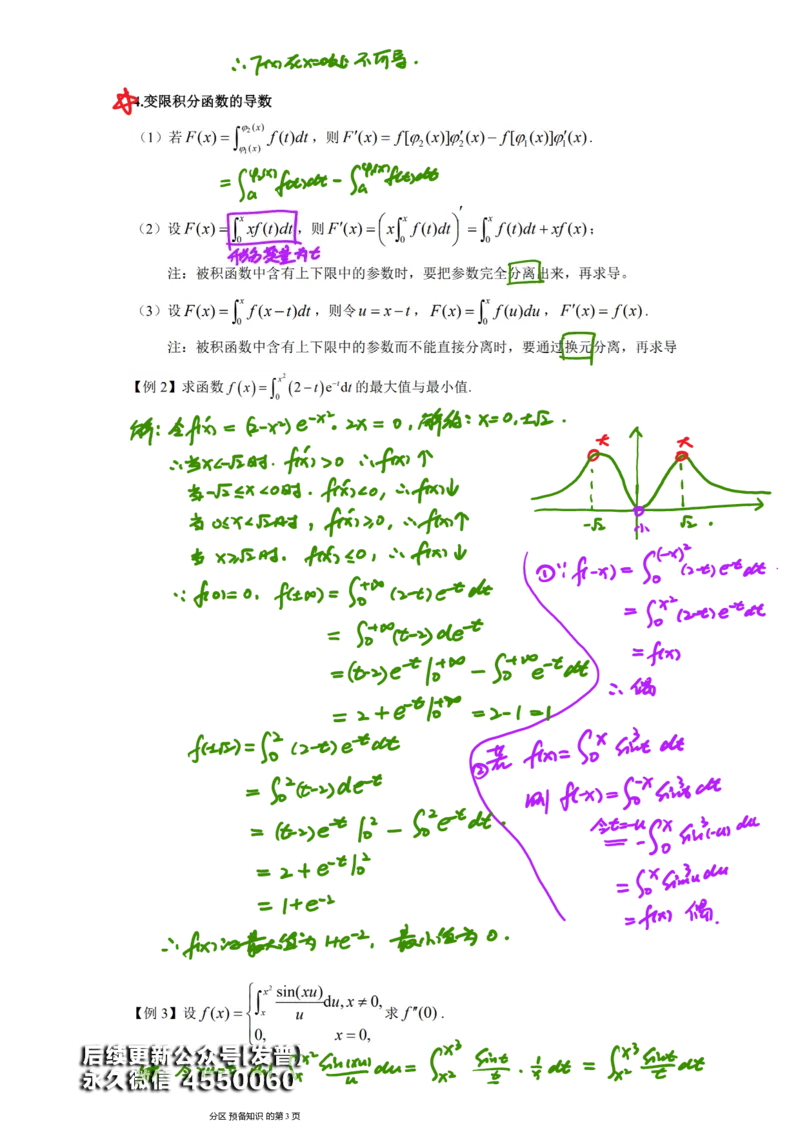 ∴ f(x)在x=0处不可导.
4.变限积分函数的导数
（1）若F(x)=∫_{φ₁(x)}^{φ₂(x)} f(t)dt，则F′(x)=f[φ₂(x)]φ₂′(x)−f[φ₁(x)]φ₁′(x).
=∫_a^{φ₂(x)} f(t)dt−∫_a^{φ₁(x)} f(t)dt
（2）设F(x)=∫_0^x xf(t)dt，则F′(x)=(x∫_0^x f(t)dt)′=∫_0^x f(t)dt+xf(x)；
积分变量为t
注：被积函数中含有上下限中的参数时，要把参数完全分离出来，再求导。
（3）设F(x)=∫_0^x f(x−t)dt，则令u=x−t，F(x)=∫_0^x f(u)du，F′(x)=f(x).
注：被积函数中含有上下限中的参数而不能直接分离时，要通过换元分离，再求导
【例2】求函数f(x)=∫_0^{x²}(2−t)e^{−t}dt的最大值与最小值.
解：令f′(x)=(2-x²)e^{-x²}·2x=0，解得：x=0,±√2.
∴当x<-√2时. f′(x)>0 ∴f(x)↑
当-√2≤x<0时. f′(x)<0，∴f(x)↓
当0≤x<√2时，f′(x)≥0，∴f(x)↑
当x≥√2时. f′(x)≤0，∴f(x)↓
大
大
-√2
小
√2
∵f(0)=0，f(±∞)=∫_0^{+∞}(2-t)e^{-t}dt
=∫_0^{+∞}(t-2)de^{-t}
=(t-2)e^{-t}|_0^{+∞}-∫_0^{+∞}e^{-t}dt
=2+e^{-t}|_0^{+∞}=2-1=1
f(±√2)=∫_0^2(2-t)e^{-t}dt
=∫_0^2(t-2)de^{-t}
=(t-2)e^{-t}|_0^2-∫_0^2e^{-t}dt.
=2+e^{-t}|_0^2
=1+e^{-2}
∴f(x)的最大值为1+e^{-2}，最小值为0.
①∵f(-x)=∫_0^{(-x)²}(2-t)e^{-t}dt
=∫_0^{x²}(2-t)e^{-t}dt
=f(x)
∴偶
②若f(x)=∫_0^x sin³t dt
则f(-x)=∫_0^{-x}sin³t dt
令t=-u = -∫_0^x sin³(-u)du
=∫_0^x sin³u du
=f(x) 偶.
【例3】设f(x)={∫_x^{x²} sin(xu)/u du, x≠0,
0, x=0, 求f″(0).
∫_x^{x²} sin(xu)/u du=∫_{x²}^{x³} sint/(t/x)·1/x dt=∫_{x²}^{x³} sint/t dt
后续更新公众号[发曾]
永久微信 4550060
分区 预备知识 的第 3 页